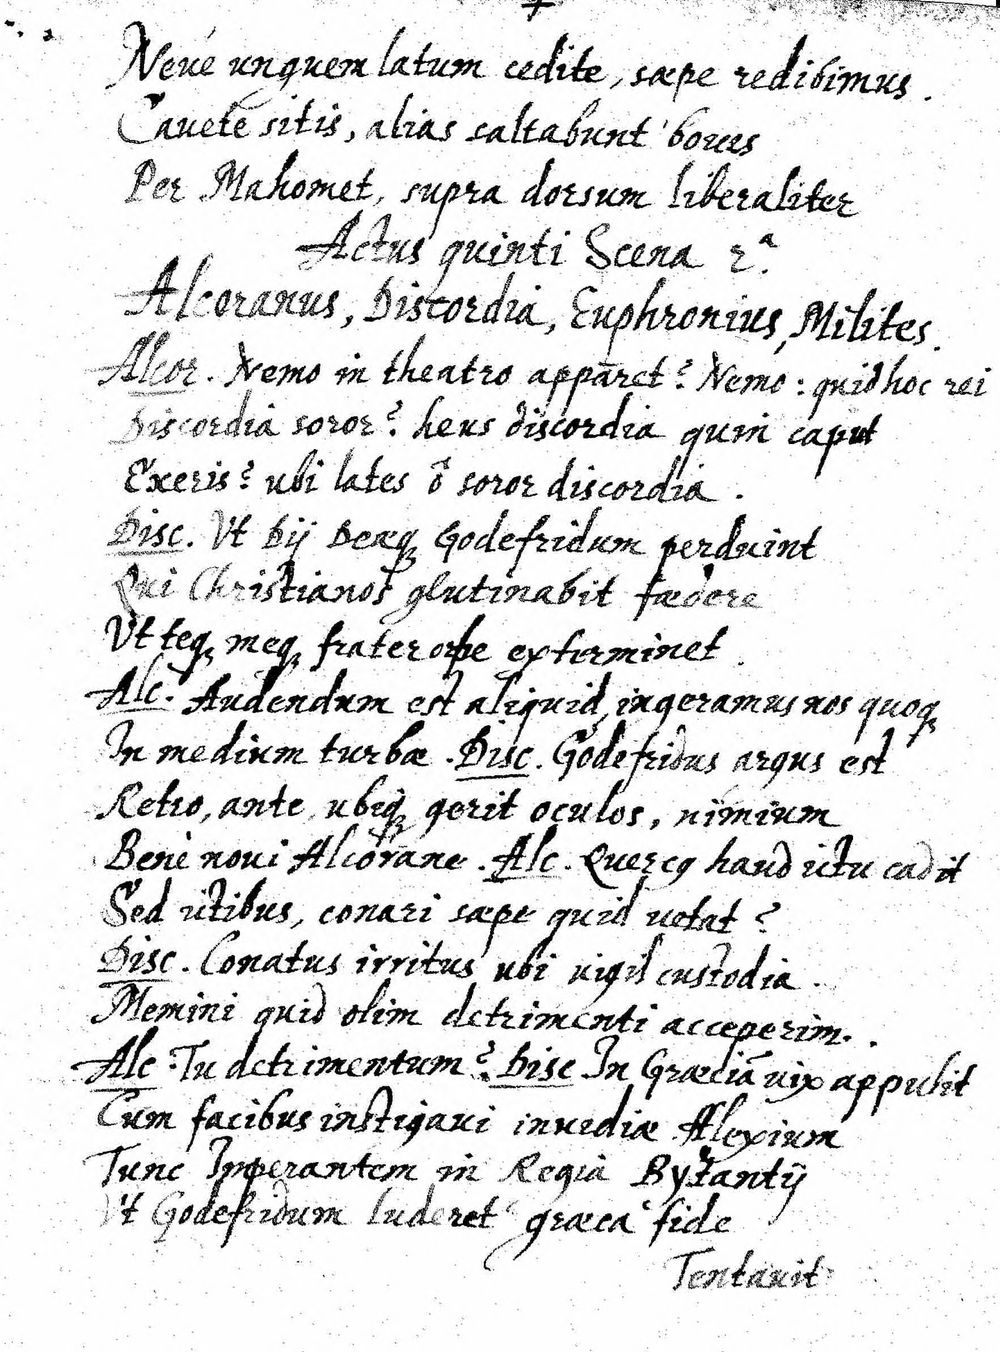 Neue unquem latum cedite, sæpe redibimus.
Cauete sitis, alias saltabunt boues
Per Mahomet, supra dorsum liberaliter
Actus quinti Scena 2.ª
Alcoranus, Discordia, Euphronius, Milites.
Alcor. Nemo in theatro apparet? Nemo: quid hoc rei
Discordia soror? heus discordia quin caput
Exeris? ubi lates ô soror discordia.
Disc. Vt Dij Deæq; Godefridum perduint
Qui Christianos glutinabit fædere
Vt teq; meq; frater orbe exterminet.
Alc. Audendum est aliquid, ingeramus nos quoq;
In medium turbæ. Disc. Godefridus argus est
Retro, ante, ubiq; gerit oculos, nimium
Benè noui Alcorane. Alc. Quercq haud ictu cadit
Sed ictibus, conari sæpe quid uetat?
Disc. Conatus irritus ubi uigil custodia.
Memini quid olim detrimenti acceperim.
Alc: Tu detrimentum? Disc In Græciā uix appulit
Cum facibus instigaui inuidiæ Alexium
Tunc Imperantem in Regià Byzantij
Vt Godefridum luderet græca fide
Tentauit